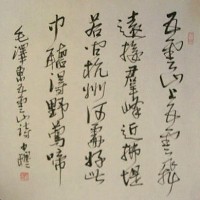 五雲山上五雲飛
遠接羣峰近拂堤
若问杭州何處好此
中聽得野鶯啼
毛澤東五雲山詩